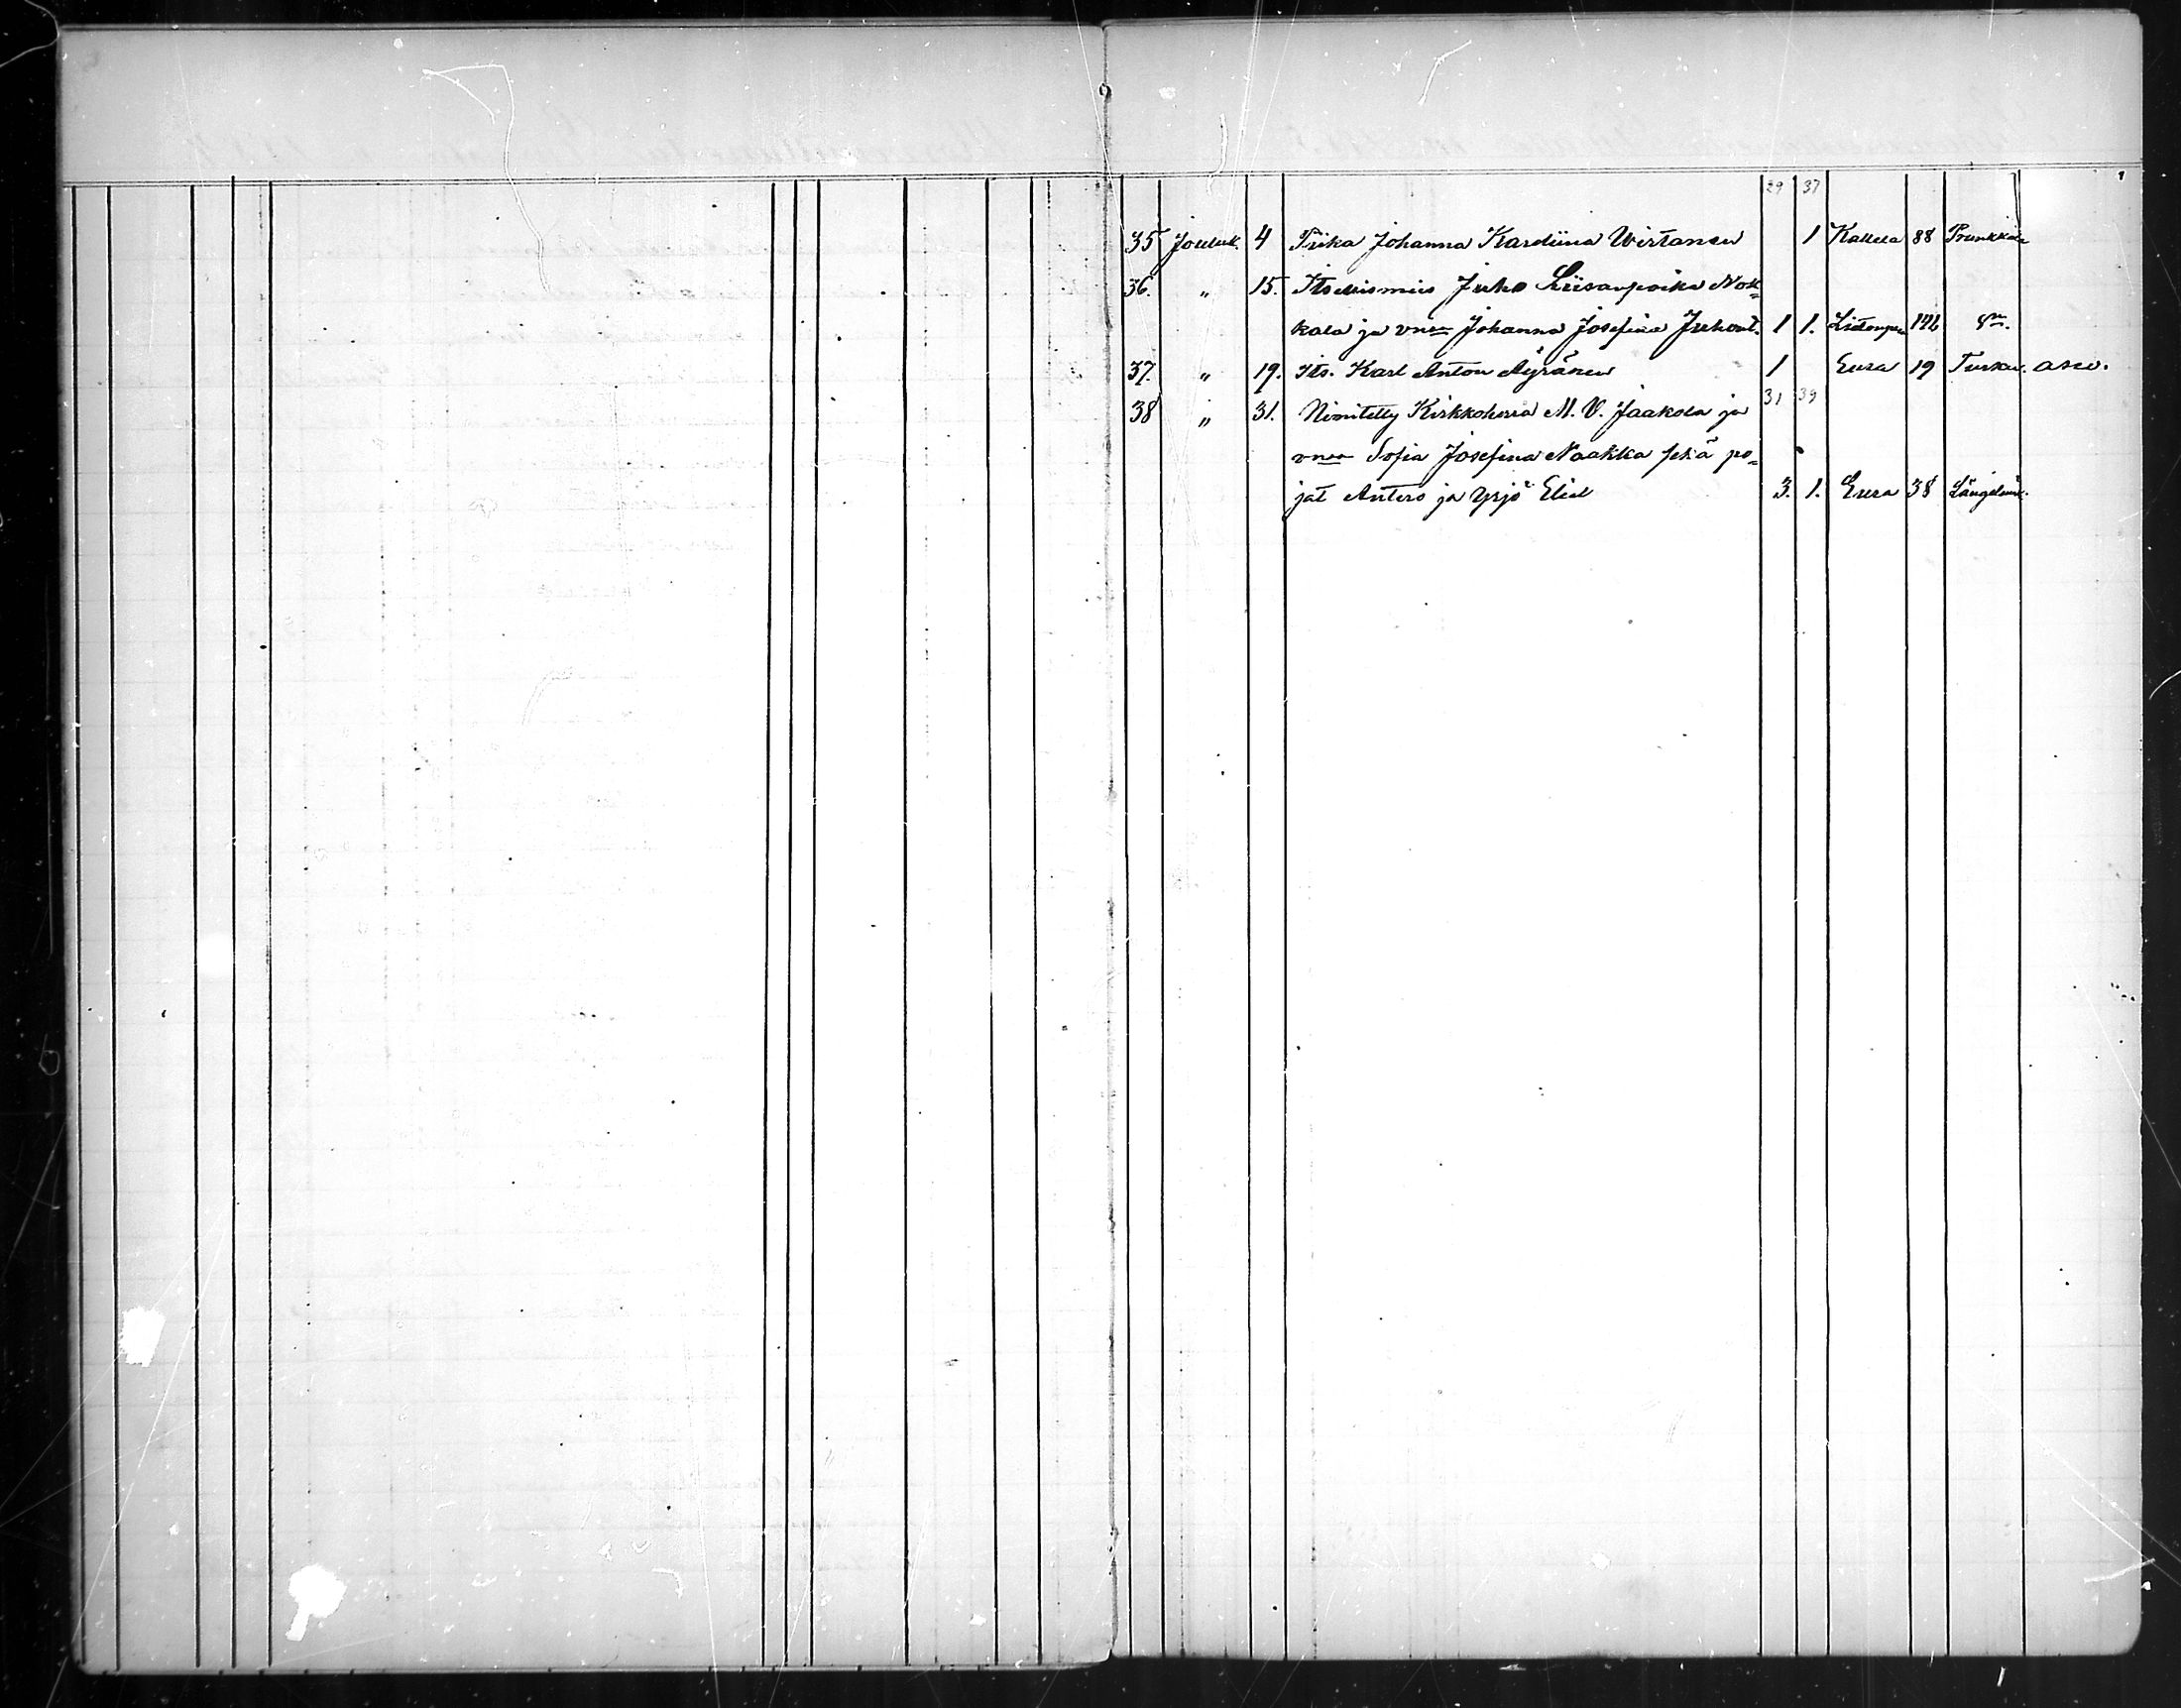 29 37
35 Jouluk. 4 Fiika Johanna Karoliina Wirtanen 1 Kallela 88 Prunkkala
36. " 15. Itsellismies Juho Liisanpoika Nok=
kala ja vmo Johanna Josefina Juhont. 1 1. 146
37. " 19. Its. Karl Anton Äyränen 1 Eura 19 Turkan. asev.
38 " 31. Nimitetty Kirkkoherra M. V. Jaakola ja 31 39
vmo Sofia Josefina Naakka sekä po=
jat Antero ja Yrjö Eliel 3. 1. Eura 38 Längelmä.